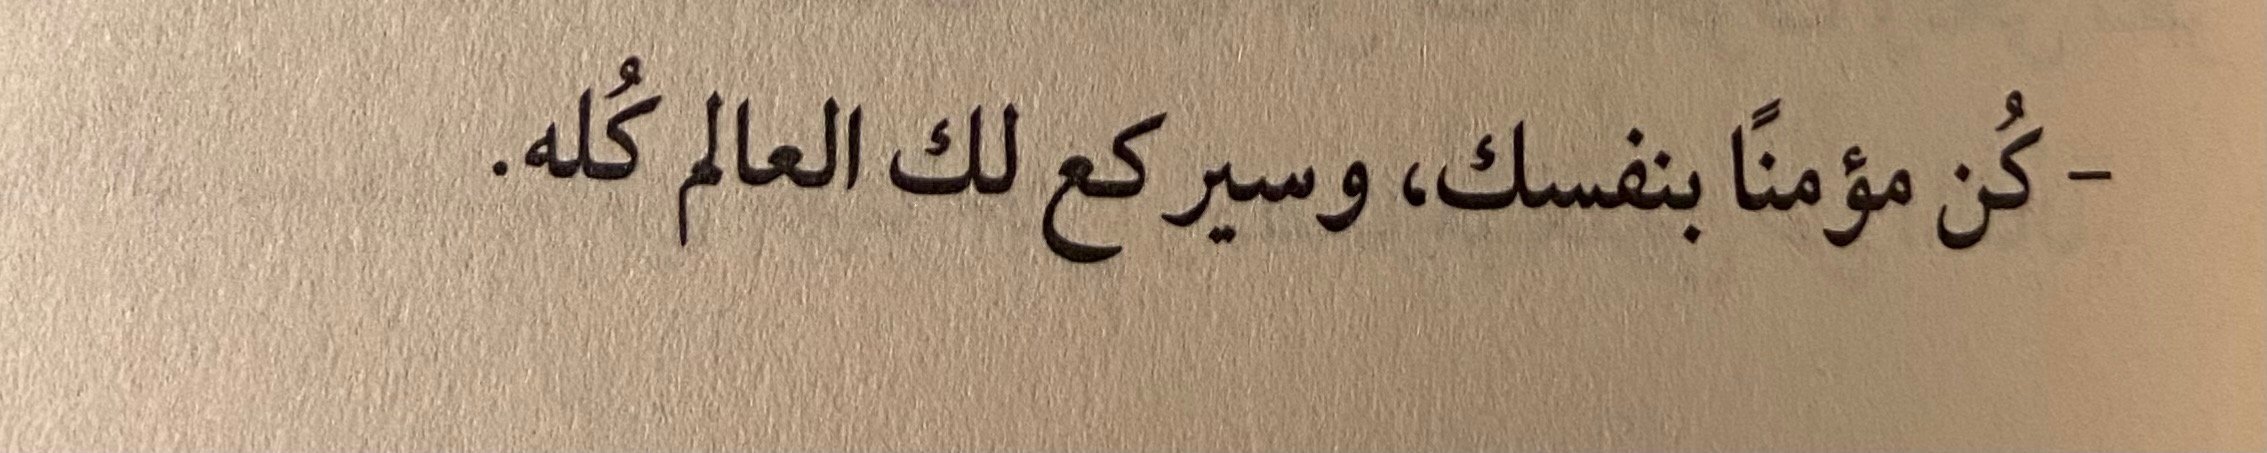 - كُن مؤمنًا بنفسك، وسيركع لك العالم كُله.